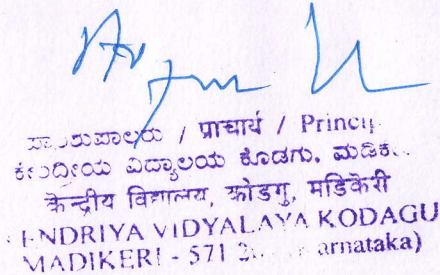 ಪ್ರಾಂಶುಪಾಲರು / प्राचार्य / Princip
ಕೇಂದ್ರೀಯ ವಿದ್ಯಾಲಯ ಕೊಡಗು, ಮಡಿಕ
केन्द्रीय विद्यालय, कोडगु, मडिकेरी
ENDRIYA VIDYALAYA KODAGU
MADIKERI - 571 2 arnataka)